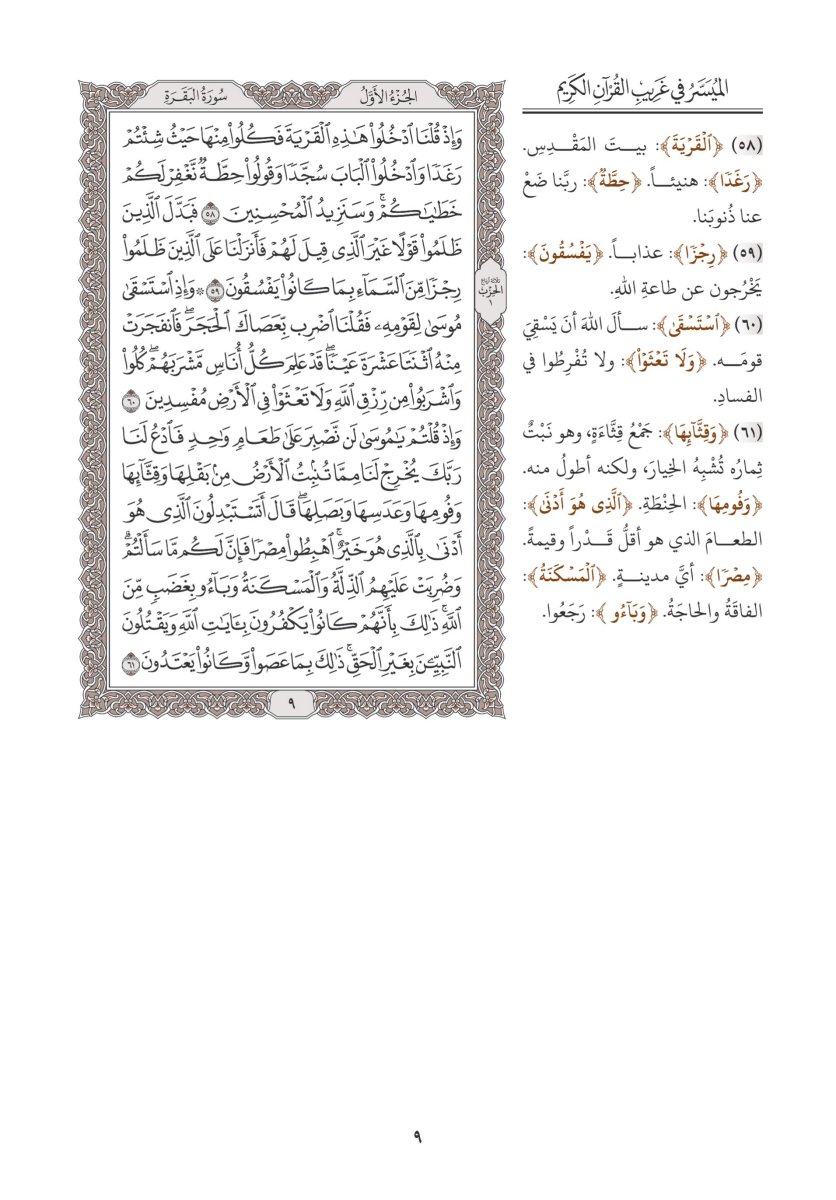 الميسر في غريب القرآن الكريم
(٥٨) ﴿ٱلْقَرْيَةَ﴾: بيـتَ المَقْـدِسِ.
﴿رَغَدًا﴾: هنيئـاً. ﴿حِطَّةٌ﴾: ربَّنا ضَعْ
عنا ذُنوبَنا.
(٥٩) ﴿رِجْزًا﴾: عذابـاً. ﴿يَفْسُقُونَ﴾:
يَخْرُجون عن طاعةِ اللهِ.
(٦٠) ﴿ٱسْتَسْقَىٰ﴾: سـألَ اللهَ أنَ يَسْقِيَ
قومَـه. ﴿وَلَا تَعْثَوْا۟﴾: ولا تُفْرِطُوا في
الفسادِ.
(٦١) ﴿وَقِثَّآئِهَا﴾: جَمْعُ قِثَّاءَةٍ، وهو نَبْتٌ
ثِمارُه تُشْبِهُ الخِيارَ، ولكنه أطولُ منه.
﴿وَفُومِهَا﴾: الحِنْطَةِ. ﴿ٱلَّذِى هُوَ أَدْنَىٰ﴾:
الطعـامَ الذي هو أقلُّ قَـدْراً وقيمةً.
﴿مِصْرًا﴾: أيَّ مدينـةٍ. ﴿ٱلْمَسْكَنَةُ﴾:
الفاقَةُ والحاجَةُ. ﴿وَبَآءُو﴾: رَجَعُوا.
الجُزْءُ الأَوَّلُ
سُورَةُ البَقَرَةِ
وَإِذْ قُلْنَا ٱدْخُلُوا۟ هَـٰذِهِ ٱلْقَرْيَةَ فَكُلُوا۟ مِنْهَا حَيْثُ شِئْتُمْ
رَغَدًا وَٱدْخُلُوا۟ ٱلْبَابَ سُجَّدًا وَقُولُوا۟ حِطَّةٌ نَّغْفِرْ لَكُمْ
خَطَـٰيَـٰكُمْ ۚ وَسَنَزِيدُ ٱلْمُحْسِنِينَ ٥٨ فَبَدَّلَ ٱلَّذِينَ
ظَلَمُوا۟ قَوْلًا غَيْرَ ٱلَّذِى قِيلَ لَهُمْ فَأَنزَلْنَا عَلَى ٱلَّذِينَ ظَلَمُوا۟
رِجْزًا مِّنَ ٱلسَّمَآءِ بِمَا كَانُوا۟ يَفْسُقُونَ ٥٩ * وَإِذِ ٱسْتَسْقَىٰ
مُوسَىٰ لِقَوْمِهِۦ فَقُلْنَا ٱضْرِب بِّعَصَاكَ ٱلْحَجَرَ ۖ فَٱنفَجَرَتْ
مِنْهُ ٱثْنَتَا عَشْرَةَ عَيْنًا ۖ قَدْ عَلِمَ كُلُّ أُنَاسٍ مَّشْرَبَهُمْ ۖ كُلُوا۟
وَٱشْرَبُوا۟ مِن رِّزْقِ ٱللَّهِ وَلَا تَعْثَوْا۟ فِى ٱلْأَرْضِ مُفْسِدِينَ ٦٠
وَإِذْ قُلْتُمْ يَـٰمُوسَىٰ لَن نَّصْبِرَ عَلَىٰ طَعَامٍ وَٰحِدٍ فَٱدْعُ لَنَا
رَبَّكَ يُخْرِجْ لَنَا مِمَّا تُنۢبِتُ ٱلْأَرْضُ مِنۢ بَقْلِهَا وَقِثَّآئِهَا
وَفُومِهَا وَعَدَسِهَا وَبَصَلِهَا ۖ قَالَ أَتَسْتَبْدِلُونَ ٱلَّذِى هُوَ
أَدْنَىٰ بِٱلَّذِى هُوَ خَيْرٌ ۚ ٱهْبِطُوا۟ مِصْرًا فَإِنَّ لَكُم مَّا سَأَلْتُمْ ۗ
وَضُرِبَتْ عَلَيْهِمُ ٱلذِّلَّةُ وَٱلْمَسْكَنَةُ وَبَآءُو بِغَضَبٍ مِّنَ
ٱللَّهِ ۗ ذَٰلِكَ بِأَنَّهُمْ كَانُوا۟ يَكْفُرُونَ بِـَٔايَـٰتِ ٱللَّهِ وَيَقْتُلُونَ
ٱلنَّبِيِّـۧنَ بِغَيْرِ ٱلْحَقِّ ۗ ذَٰلِكَ بِمَا عَصَوا۟ وَّكَانُوا۟ يَعْتَدُونَ ٦١
الحزب
١
٩
٩